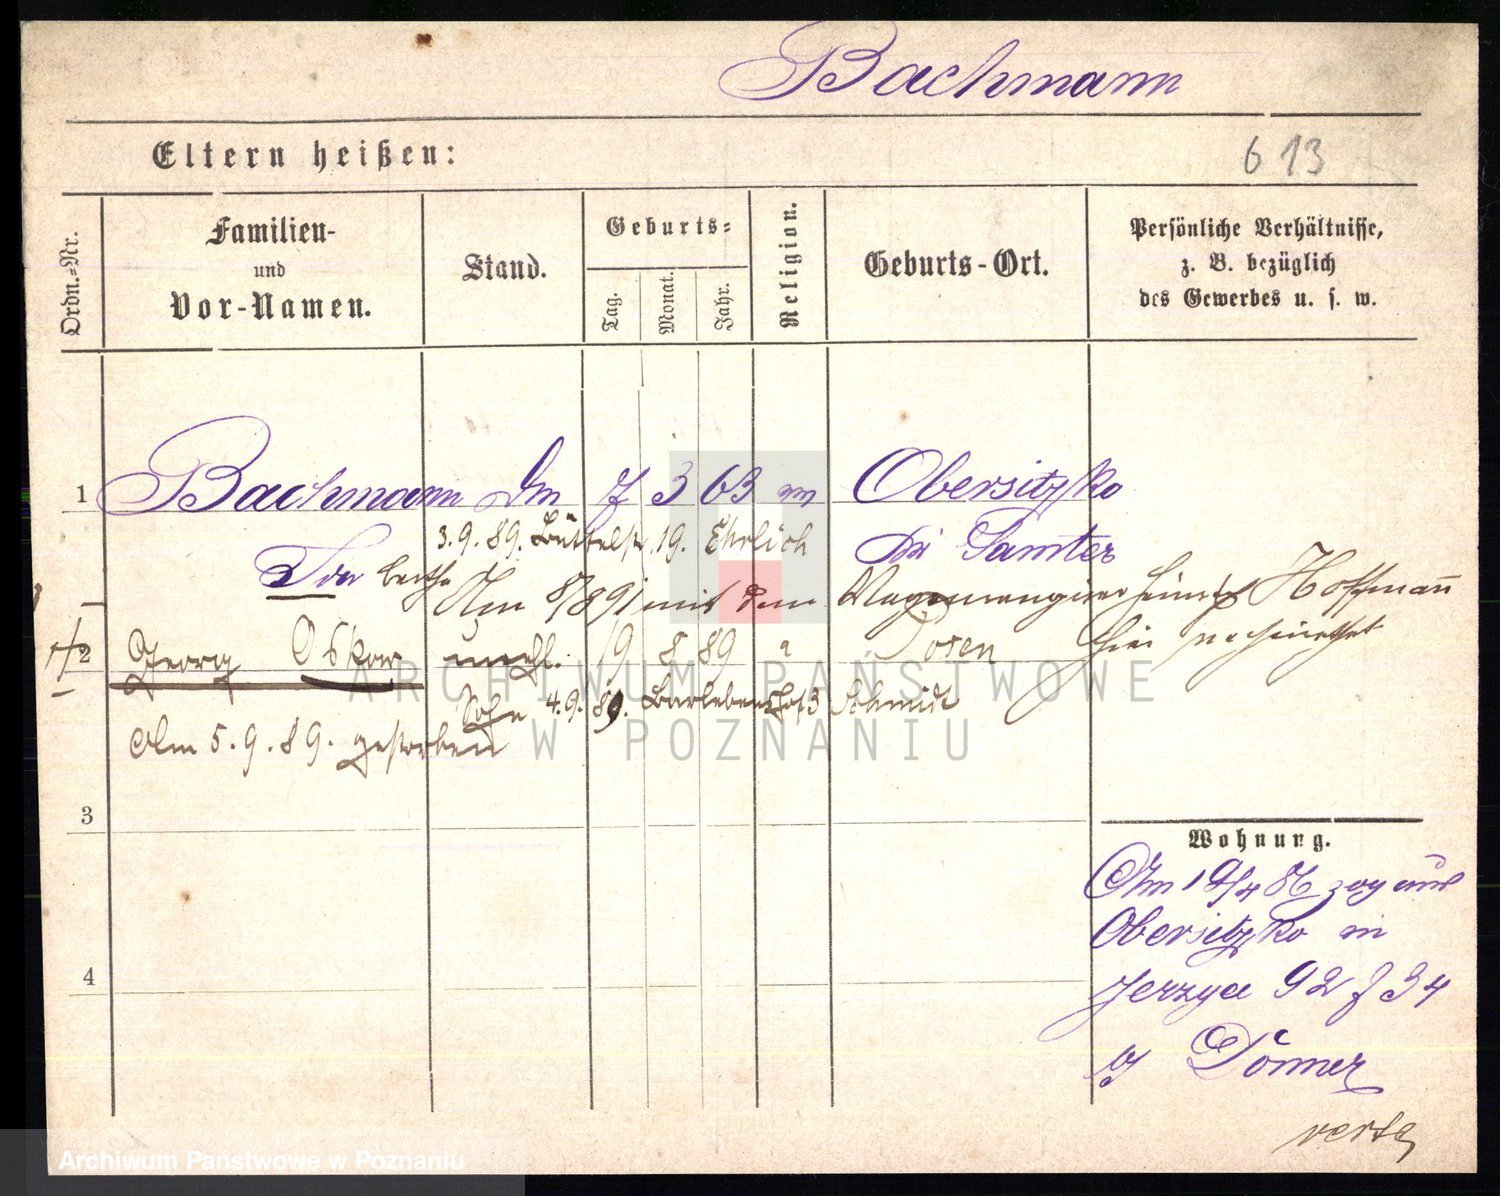 Bachmann
Eltern heißen:
6 13
Ordn.=Nr.
Familien-
und
Vor-Namen.
Stand.
Geburts=
Tag.
Monat.
Jahr.
Religion.
Geburts-Ort.
Persönliche Verhältnisse,
z. B. bezüglich
des Gewerbes u. s. w.
1
Bachmann Dm 7 3 63 Obersitzko
3.9.89. Büttelstr. 19. Ehrlich
Kr Samter
Ida bertha Am 8/8 91 mit dem Heinrich Hoffmann
2
Georg Oskar unehl. 19 8 89 Posen hier
Sohn 4.9.89. Barlebenshof 3 Schmidt
Am 5.9.89. gestorben
3
4
Wohnung.
Am 19/4 86 zog aus
Obersitzko in
Jerzyce 92 f 34
Dönner
verte
ARCHIWUM PAŃSTWOWE
W POZNANIU
Archiwum Państwowe w Poznaniu